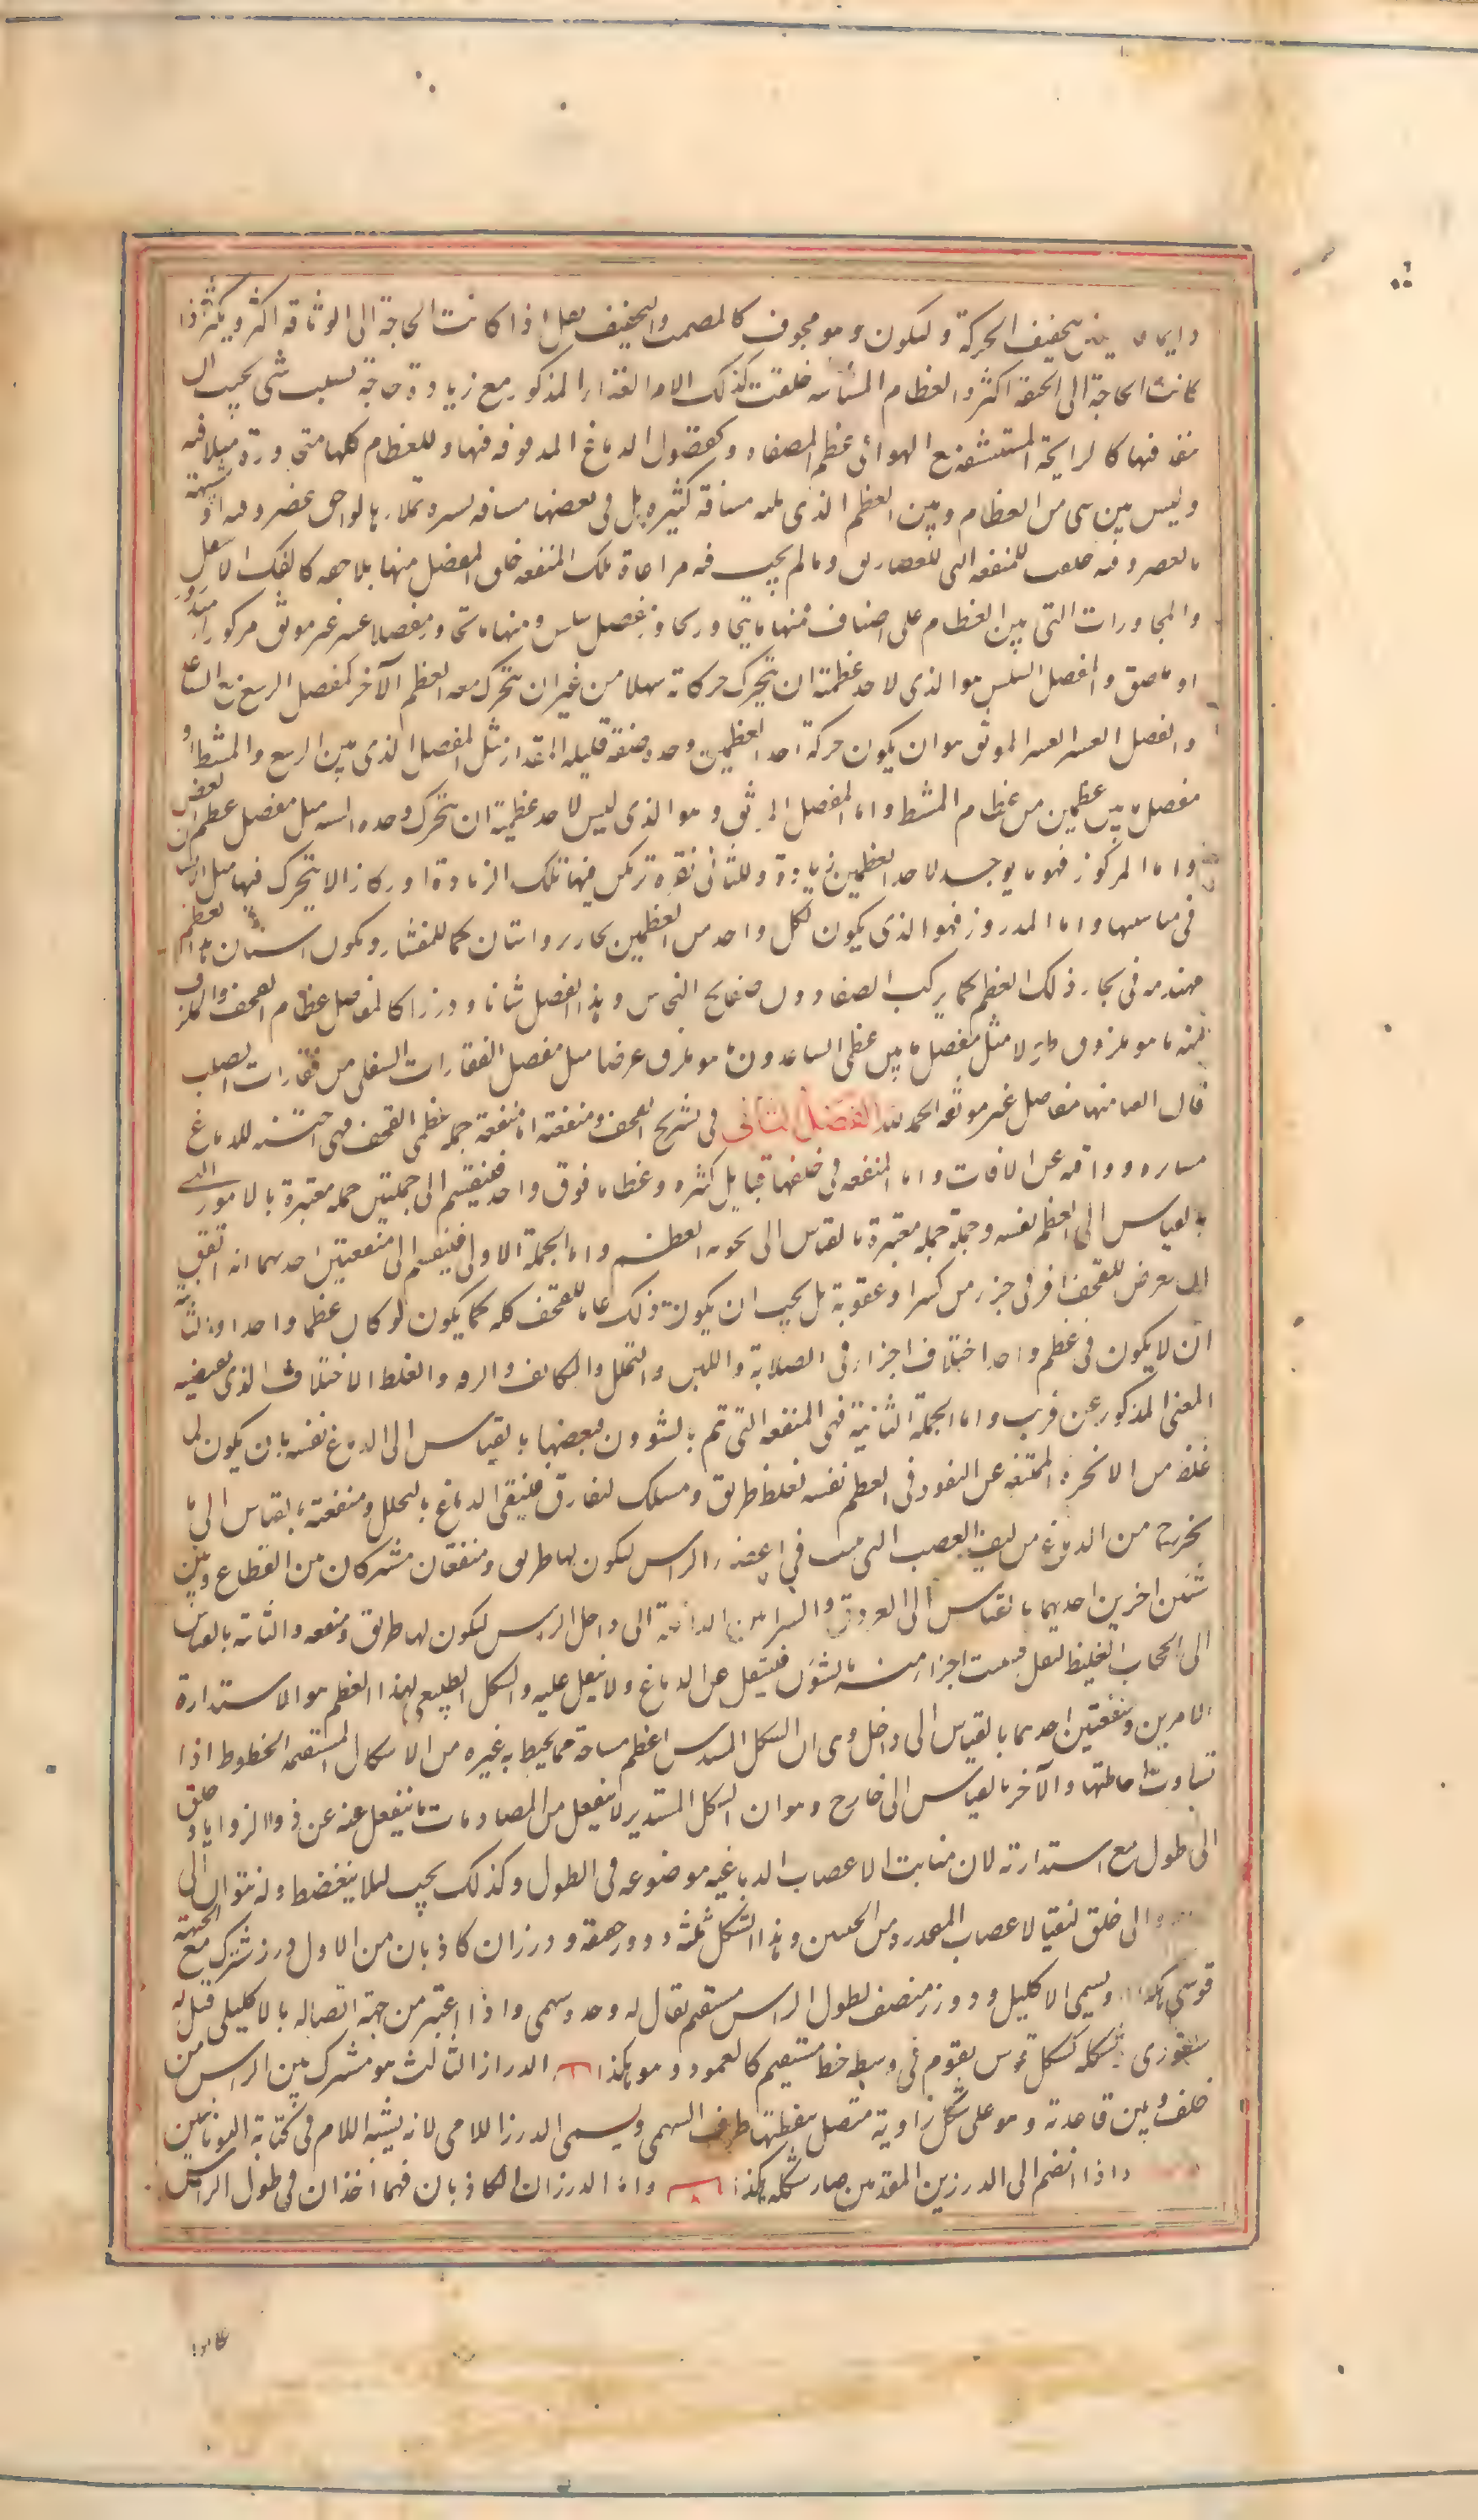 تخفيف الحركة وليكون وهو مجوف كالمصمت والتخفيف يقل اذا كانت الحاجة الى الوثاقه اكثر ويكثر اذا
كانت الحاجة الى الخفة اكثر والعظام المشاشيه خلقت كذلك لامر الغذاء المذكور مع زيادة حاجة بسبب شى يجب ان
ينفذ فيها كالرايحة المستنشقة مع الهواء فى عظم المصفاه وكفضول الدماغ المدفوعه فيها وللعظام كلها متجاورة متلاقيه
وليس بين شى من العظام وبين العظم الذى يليه مسافة كثيره بل فى بعضها مسافه يسيره تملاءها لواحق غضروفيه او شبيهة
بالغضروفيه خلقت للمنفعه التى للغضاريف ومالم يجب فيه مراعاة تلك المنفعه خلق المفصل منها بلا لاحقه كالفك الاسفل
والمجاورات التى بين العظام على اصناف فمنها ما يتجاور تجاور مفصل سلس ومنها ما يتجاور مفصلا عسر غير موثق مركوز او مدروز
او ملصق والمفصل السلس هو الذى لاحد عظميه ان يتحرك حركاته سهلا من غير ان يتحرك معه العظم الآخر كمفصل الرسغ مع الساعد
والمفصل العسر الغير الموثق هو ان يكون حركة احد العظمين وحده صعبة قليله المقدار مثل المفصل الذى بين الرسغ والمشط او
مفصل ما بين عظمين من عظام المشط واما المفصل الموثق وهو الذى ليس لاحد عظميه ان يتحرك وحده البته مثل مفصل عظام القص
واما المركوز فهو ما يوجد لاحد العظمين زيادة وللثانى نقرة ترتكز فيها تلك الزيادة ارتكازا لا يتحرك فيها مثل الاسنان
فى منابتها واما المدروز فهو الذى يكون لكل واحد من العظمين تحازيز واسنان كما للمنشار ويكون اسنان هذا العظم
مهندمه فى تحازيز ذلك العظم كما يركب الصفارون صفايح النحاس وهذا الفصل شانا ودرزا كالمفاصل عظام القحف والملزق
منه ما هو ملزوق طولا مثل مفصل ما بين عظمى الساعد ومنه ما هو ملزق عرضا مثل مفصل الفقارات السفلى من فقارات الصلب
فان العليا منها مفاصل غير موثقه الحمد لله الفصل الثانى فى تشريح القحف ومنفعته اما منفعة جملة عظمى القحف فهى جنة للدماغ
ساترة وواقيه عن الافات واما المنفعه فى خلقها قبايل كثيره وعظاما فوق واحد فينقسم الى جملتين جمله معتبرة بالامور التى
بالقياس الى العظم نفسه وجملة جمله معتبرة بالقياس الى ما يحويه العظم واما الجملة الاولى فينقسم الى منفعتين احديهما انه ان اتفق
ان يعرض للقحف افة فى جزء من كسر او عفونة لم يجب ان يكون ذلك عاما للقحف كله كما يكون لو كان عظما واحدا والثانية
ان لا يكون فى عظم واحد اختلاف اجزاء فى الصلابة واللين والتخلخل والتكاثف والرقه والغلظ الاختلاف الذى يقتضيه
المعنى المذكور عن قريب واما الجملة الثانية فهى المنفعه التى تتم بالشؤون فبعضها بالقياس الى الدماغ نفسه بان يكون لما
غلظ من الابخره الممتنعه عن النفوذ فى العظم نفسه لغلظه طريق ومسلك لتفارق فينقى الدماغ بالتحلل ومنفعة بالقياس الى ما
يخرج من الدماغ من ليف العصب التى ينبت فى اعضاء الراس ليكون لها طريق ومنفعتان مشتركتان من الدماغ وبين
شيئين اخرين احديهما بالقياس الى العروق والشرايين الداخلة الى داخل الراس ليكون لها طريق ومنفعه والثانيه بالقياس
الى الحجاب الغليظ الثقيل فيتشبث اجزاء منه بالشؤن فيستقل عن الدماغ ولا يثقل عليه والشكل الطبيعى لهذا العظم هو الاستدارة
لامرين ومنفعتين احديهما بالقياس الى داخل وهى ان الشكل المستدير اعظم مساحة مما يحيط به غيره من الاشكال المستقيمه الخطوط اذا
تساوت احاطتها والآخر بالقياس الى خارج وهو ان الشكل المستدير لا ينفعل من المصادمات ما ينفعل عنه ذوا الزوايا وخلق
الى طول مع استدارته لان منابت الاعصاب الدماغيه موضوعه فى الطول وكذلك يجب لئلا ينضغط وله نتوان الى
والى خلف ليقيا الاعصاب المنحدره من الجنبين ولهذا الشكل ثلثه دروز حقيقة ودرزان كاذبان من الاول درز مشترك مع الجبهة
قوسى هكذا ويسمى الاكليلى ودرز منصف لطول الراس مستقيم يقال له وحده سهمى واذا اعتبر من جهة اتصاله بالاكليلى قيل له
سفودى شكله كشكل قوس يقوم فى وسطه خط مستقيم كالعمود وهو هكذا الدرز الثالث هو مشترك بين الراس من
خلف وبين قاعدته وهو على شكل زاوية متصل بنقطتها طرف السهمى ويسمى الدرز اللامى لانه يشبه اللام فى كتابة اليونانيين
واذا انضم الى الدرزين المقدمين صار شكله هكذا واما الدرزان الكاذبان فهما آخذان فى طول الراس